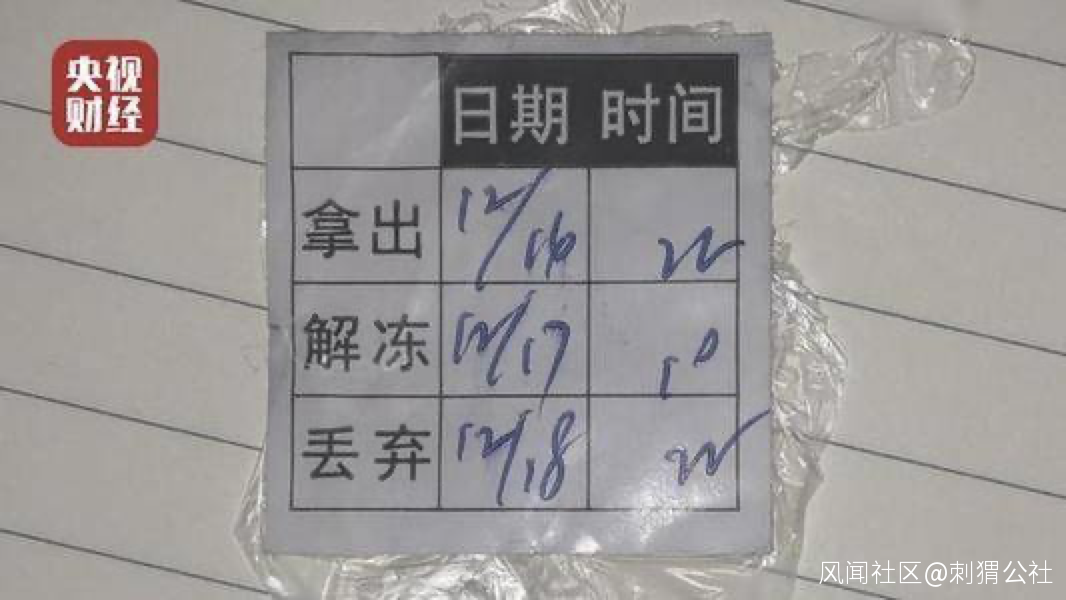 央视
财经
日期 时间
拿出 12/16 22
解冻 12/17 10
丢弃 12/18 22
风闻社区@刺猬公社